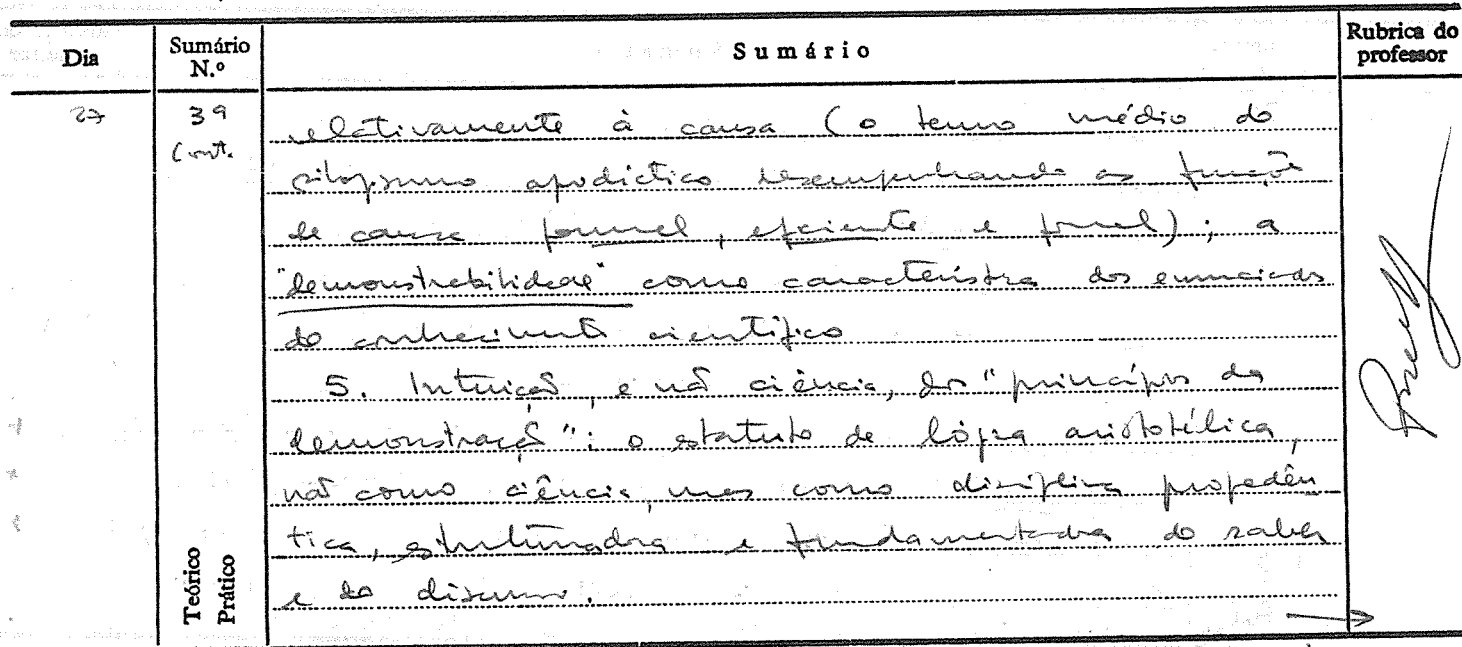 Dia
Sumário N.º
Sumário
Rubrica do professor
27
39
Cont.
relativamente à causa (o termo médio do
silogismo apodíctico desempenhando as funções
de causa formal, eficiente e final); a
"demonstrabilidade" como característica dos enunciados
do conhecimento científico
5. Intuição, e não ciência, dos "princípios da
demonstração": o estatuto de lógica aristotélica,
não como ciência, mas como disciplina propedêu
tica, estruturadora e fundamentadora do saber
e do discurso.
Teórico
Prático